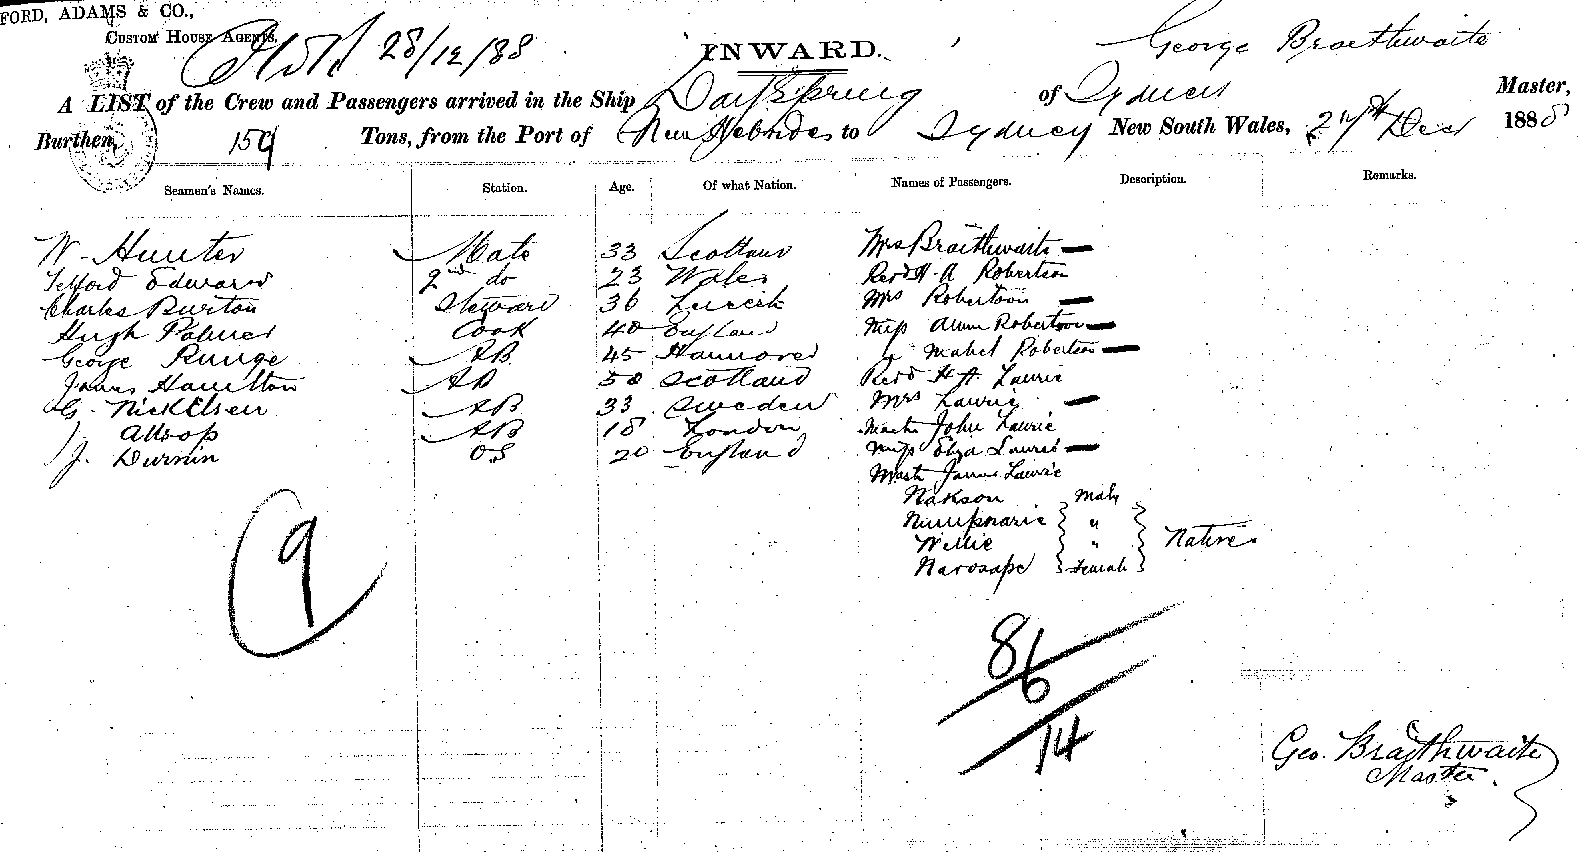 FORD, ADAMS & CO.,
CUSTOM HOUSE AGENTS,
28/12/88
INWARD.
George Braithwaite
A LIST of the Crew and Passengers arrived in the Ship Dayspring of Sydney Master,
Burthen, 159 Tons, from the Port of New Hebrides to Sydney New South Wales, 27th Dec 1888
Seamen's Names. Station. Age. Of what Nation. Names of Passengers. Description. Remarks.
W. Hunter Mate 33 Scotland Mrs Braithwaite —
Telford Edward 2nd do 23 Wales Revd H. A. Robertson
Charles Burton Steward 36 Mrs Robertson —
Hugh Palmer Cook 40 England Miss Robertson —
George Runge AB 45 Hannover " Mabel Robertson —
James Hamilton AB 50 Scotland Revd H. A. Laurie
G. Nickelsen AB 33 Sweden Mrs Laurie —
J. Allsop AB 18 London Mastr John Laurie
J. Durnin OS 20 England Miss Eliza Laurie —
Mastr James Laurie
Nakson Male
Numpnarie "
Willie " Natives
Narosape Female
9
8/6
14
Geo. Braithwaite
Master